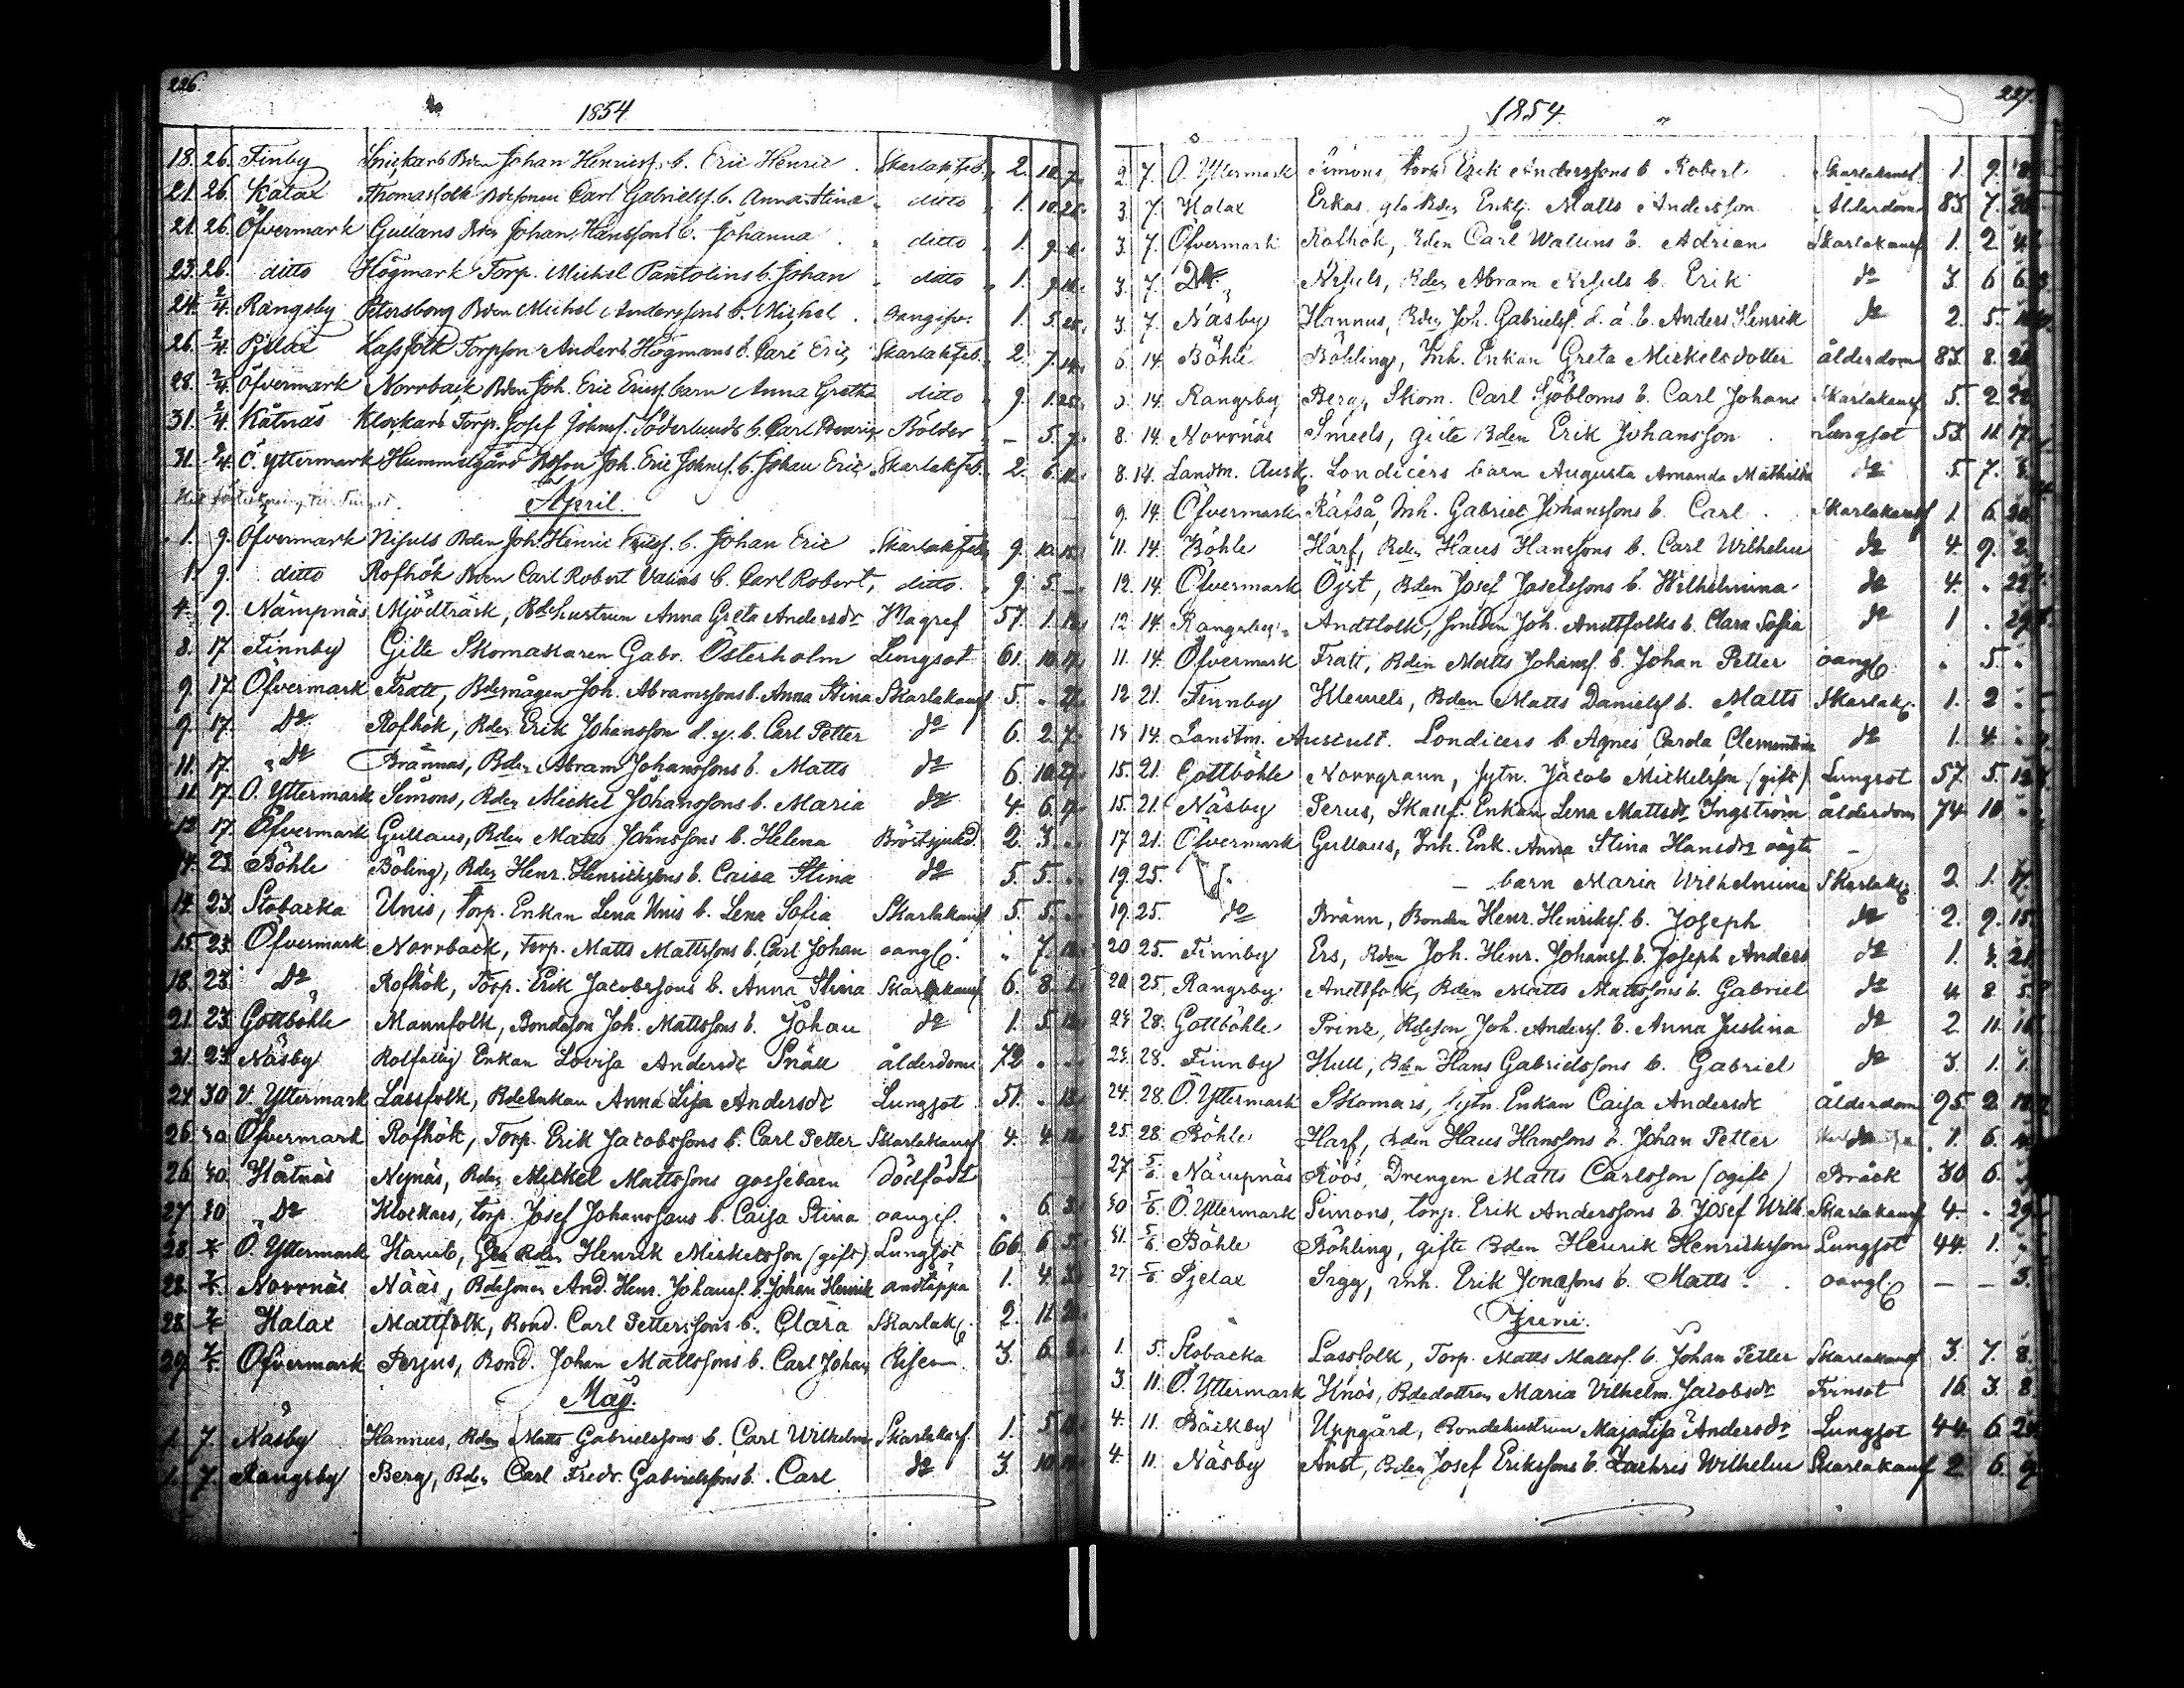 226.
1854
18. 26. Finby Snickars Bden Johan Henricss. b. Eric Henric Skarlak.feb. 2. 10. 7.
21. 26. Kalax Thomasfolk Bdesonen Carl Gabrielss. b. Anna Stina ditto 1. 10. 25.
21. 26. Öfvermark Gullans Bden Johan Hanssons b. Johanna ditto 1. 9. 6.
23. 26. ditto Högmark Torp. Michel Pantolins b. Johan ditto 1. 9.
24. 2/4 Rangsby Petersborg Bden Michel Anderssons b. Michel oangifv. 1. 5. 25.
26. 2/4 Pjelax Lassfolk Torpson Anders Högmans b. Carl Eric Skarlakfeb. 2. 7. 14.
28. 2/4 Öfvermark Norrback Bden Joh. Eric Ericss. barn Anna Gretha ditto 9. 1. 25.
31. 2/4 Kåtnäs Klockars Torp. Josef Johnss. Söderlunds b. Carl Henric Bölder - 5. 7.
31. 2/4 Ö. Yttermark Hummelgård Bdson Joh. Eric Johnss. b. Johan Eric Skarlakfb. 2. 6. 11.
April.
1. 9. Öfvermark Nisuls Bden Joh. Henric Ericss. b. Johan Eric Skarlakfeb. 9. 10. 15.
1. 9. ditto Rofhök Bden Carl Robert Valins b. Carl Robert, ditto. 9. 5. -
4. 9. Nämpnäs Mjödträsk, Bdehustrun Anna Greta Andersdr Magref 57. 1. 12.
8. 17. Finnby Gifte Skomakaren Gabr. Österholm Lungsot 61. 10. 17.
9. 17. Öfvermark Fratt, Bdemågen Joh. Abramssons b. Anna Stina Skarlakansf 5. . 21.
9. 17. Do Rofhök, Bden Erik Johansson d. y. b. Carl Petter do 6. 2. 7.
11. 17. Do Brännas, Bden Abram Johanssons b. Matts do 6. 10. 27.
11. 17. Ö. Yttermark Simons, Bden Mickel Johanssons b. Maria do 4. 6. 17.
13. 17. Öfvermark Gullans, Bden Matts Johnssons b. Helena Bröstsjukd. 2. 3. .
14. 23. Böhle Böling, Bden Henr. Henrickssons b. Caisa Stina do 5. 5. .
14. 23. Stobacka Unis, torp. Enkan Lena Unis b. Lena Sofia Skarlakansf 5. 5. .
15. 23. Öfvermark Norrback, Torp. Matts Mattssons b. Carl Johan oangf. . 7.
18. 23. Do Rofhök, Torp. Erik Jacobssons b. Anna Stina Skarlakansf 6. 8.
21. 23. Gottböhle Mannfolk, Bondeson Joh. Mattssons b. Johan do 1. 5.
21. 23. Näsby Rotfattig Enkan Lovisa Andersdr Snäll ålderdom 72. . .
24. 30. V. Yttermark Lassfolk, BdeEnkan Anna Lisa Andersdr Lungsot 51. . 13.
26. 30. Öfvermark Rofhök, Torp. Erik Jacobssons b. Carl Petter Skarlakansf 4. 4.
26. 30. Kåtnäs Nynäs, Bden Mickel Mattssons gossebarn dödfödt
27. 30. Do Klockars, Torp. Josef Johanssons b. Caisa Stina oangf. . 6. 3.
28. 7/5 Ö. Yttermark Karils, Bden Henrik Mickelsson (gift) Lungsot 66. 6. 5.
28. 7/5 Norrnäs Nääs, Bdesonen And. Henr. Johanss. b. Johan Henrik andtäppa 1. 4.
28. 7/5 Kalax Mattfolk, Bond. Carl Petterssons b. Clara Skarlakf. 2. 11.
29. 7/5 Öfvermark Perjus, Bond. Johan Mattssons b. Carl Johan 3. 6.
Maij.
1. 7. Näsby Hannus, Bden Matts Gabrielssons b. Carl Wilhelm Skarlakansf. 1. 5.
1. 7. Rangsby Berg, Bden Carl Fredr. Gabrielssons b. Carl do 3. 10.
227.
1854.
2. 7. Ö. Yttermark Simons, torp. Erik Anderssons b. Robert Skarlakansf. 1. 9. 8.
3. 7. Kalax Erkas, gla Bden Enklj. Matts Andersson Ålderdom 83. 7.
3. 7. Öfvermark Rofhök, Bden Carl Wallins b. Adrian Skarlakansf. 1. 2. 4.
3. 7. Do Nisuls, Bden Abram Nisuls b. Erik do 3. 6. 6.
3. 7. Näsby Hannus, Bden Joh. Gabrielss. d. ä. b. Anders Henrik do 2. 5.
6. 14. Böhle Böhling, Inh. Enkan Greta Mickelsdotter ålderdom 83. 8.
5. 14. Rangsby Berg, Skom. Carl Sjöbloms b. Carl Johans Skarlakansf 5. 2. 20.
8. 14. Norrnäs Smeds, gifte Bden Erik Johansson Lungsot 53. 11. 17.
8. 14. Landtm. Ausk. Londicers barn Augusta Amanda Mathilda do 5. 7.
9. 14. Öfvermark Räfså, Inh. Gabriel Johanssons b. Carl Skarlakansf 1. 6. 20.
11. 14. Böhle Harf, Bden Hans Hanssons b. Carl Wilhelm do 4. 9. 2.
12. 14. Öfvermark Öjst, Bden Josef Josefssons b. Wilhelmina do 4. . 22.
12. 14. Rangsby Andtfolk, smeden Joh. Andtfolks b. Clara Sofia do 1 . 29.
11. 14. Öfvermark Fratt, Bden Matts Johanss. b. Johan Petter oangf. . 5. .
12. 21. Finnby Klemets, Bden Matts Daniels. b. Matts Skarlakf. 1. 2 .
13. 14. Landtm. Auscult. Londicers b. Agnes Carola Clementina do 1. 4. .
15. 21. Gottböhle Norrgrann, sytn. Jacob Mickelsson (gift) Lungsot 57. 5. 12.
15. 21. Näsby Perus, Skallf. Enkan Lena Mattsdr Ingström ålderdom 74 10 .
17. 21. Öfvermark Gullans, Inh. Enk. Anna Stina Hansdrs oägta -
19. 25. - barn Maria Wilhelmina Skarlakf. 2. 1. 4.
19. 25. do Bränn, Bonden Henr. Henrikss. b. Joseph do 2. 9. 15.
20. 25. Finnby Ers, Bden Joh. Henr. Johanss. b. Joseph Anders do 1. 3. 21.
20. 25. Rangsby Andtfolk, Bden Matts Mattssons b. Gabriel do 4. 8. 5.
24. 28. Gottböhle Prinz, Bdeson Joh. Anderss. b. Anna Justina do 2. 11. 16.
23. 28. Finnby Kull, Bden Hans Gabrielssons b. Gabriel do 3. 1. 1.
24. 28. Ö. Yttermark Skomars, sytn. Enkan Caisa Andersdr ålderdom 95. 2.
25. 28. Böhle Harf, Bden Hans Hanssons b. Johan Petter do 1. 6.
27. 5/6 Nämpnäs Röös, Drengen Matts Carlsson (ogift) Bråck 30 6.
30 5/6 Ö. Yttermark Simons, torp. Erik Anderssons b. Josef Wilh. Skarlakansf 4. . 29.
31. 5/6 Böhle Böhling, gifte Bden Henrik Henricksson Lungsot 44. 1. .
27. 5/6 Pjelax Srgg, Inh. Erik Jonassons b. Matts oangf. - - 3.
Juni.
1. 5. Stobacka Lassfolk, Torp. Matts Mattss. b. Johan Petter Skarlakansf 3. 7. 8.
3. 11. Ö. Yttermark Knös, Bdedottren Maria Vilhelm. Jacobsdr Tvinsot 16. 3. 8.
4. 11. Bäckby Uppgård, Bondehustrun Maja Lisa Andersdr Lungsot 44. 6.
4. 11. Näsby Änst, Bden Josef Erikssons b. Zachris Wilhelm Skarlakansf 2. 6. 9.